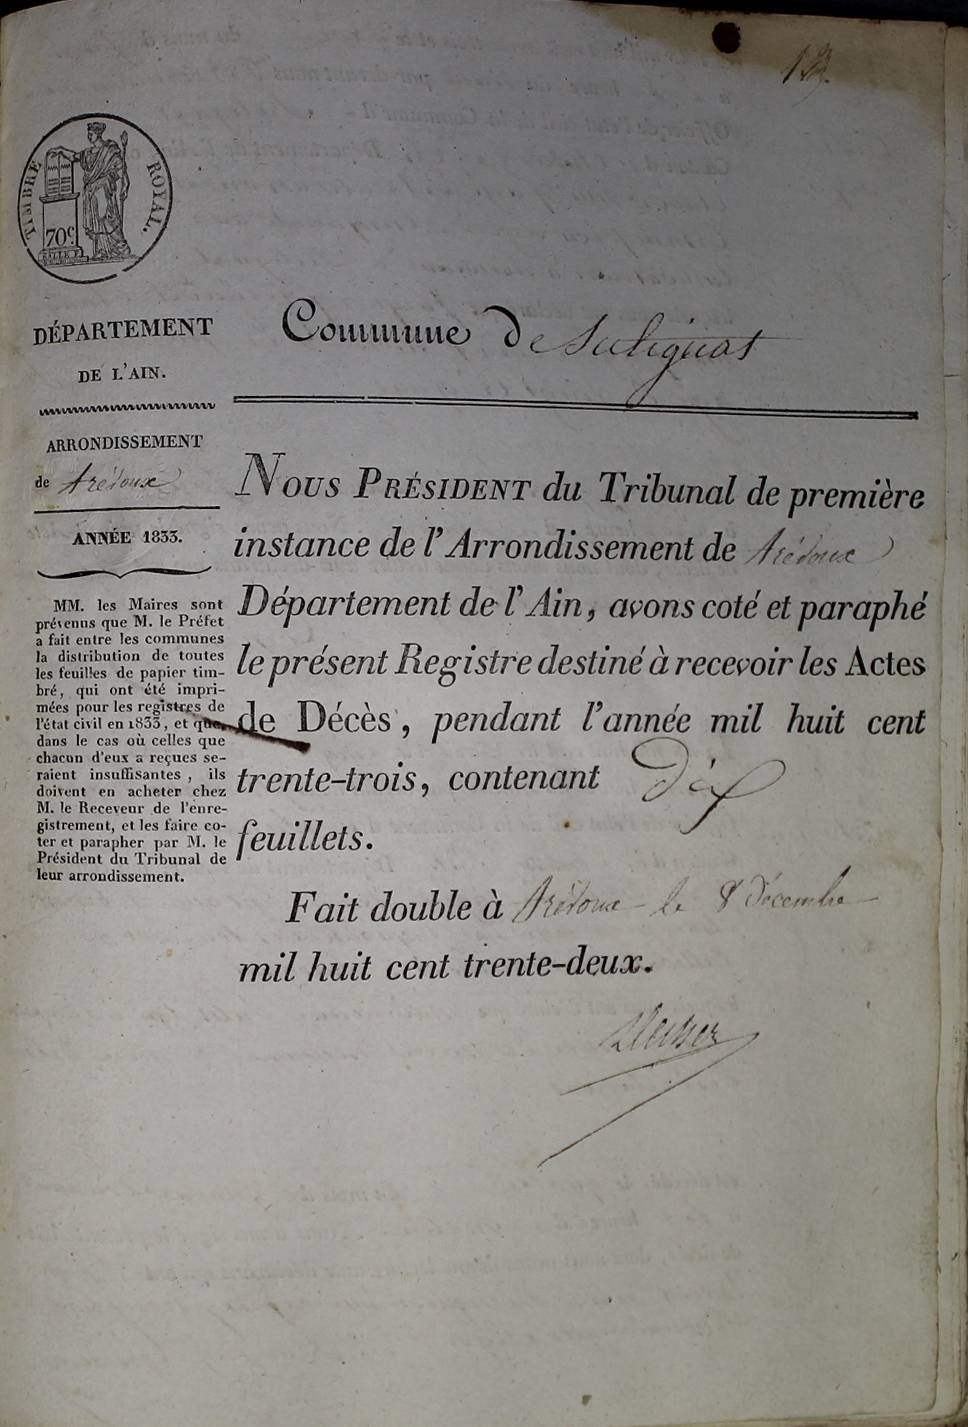 TIMBRE ROYAL.
70c.
DÉPARTEMENT
DE L'AIN.
ARRONDISSEMENT
de Trévoux
ANNÉE 1833.
MM. les Maires sont
prévenus que M. le Préfet
a fait entre les communes
la distribution de toutes
les feuilles de papier tim-
bré, qui ont été impri-
mées pour les registres de
l'état civil en 1833, et que,
dans le cas où celles que
chacun d'eux a reçues se-
raient insuffisantes, ils
doivent en acheter chez
M. le Receveur de l'enre-
gistrement, et les faire co-
ter et parapher par M. le
Président du Tribunal de
leur arrondissement.
Commune De Sulignat
NOUS PRÉSIDENT du Tribunal de première
instance de l'Arrondissement de Trévoux
Département de l'Ain, avons coté et paraphé
le présent Registre destiné à recevoir les Actes
de Décès, pendant l'année mil huit cent
trente-trois, contenant Dix
feuillets.
Fait double à Trévoux le 8 décembre
mil huit cent trente-deux.